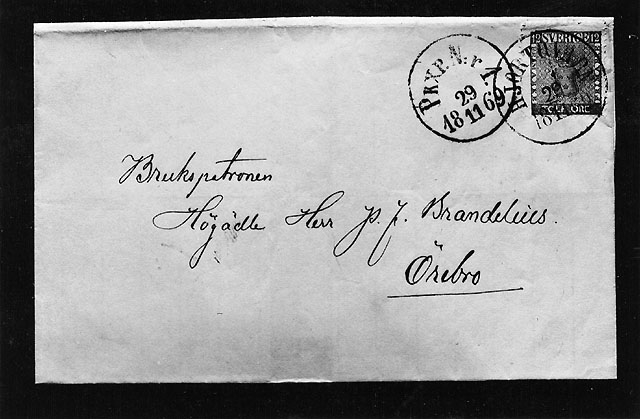 PKXP. N:r 7
29
18 11 69
HJORTQVARN
29
18
12 SVERIGE 12
TOLF ÖRE
Brukspatronen
Högädle Herr P. J. Brandelius.
Örebro